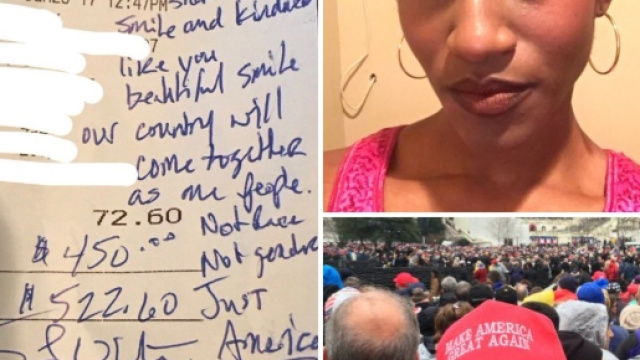 '17 12:47PM
smile and kindness
7
like you
beautiful smile
our country will
come together
as one people.
72.60 Not Race
$ 450.00 Not gender
$ 522.60 Just
America
MAKE AMERICA
GREAT AGAIN